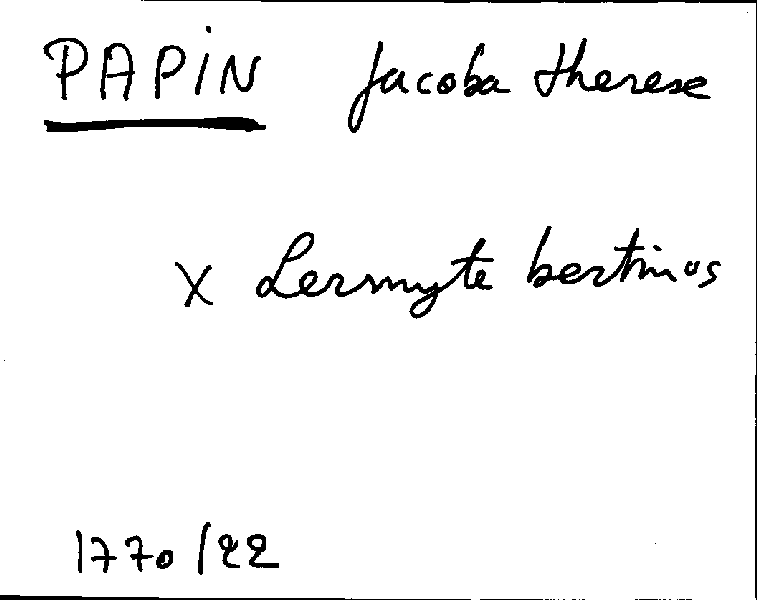 PAPIN Jacoba therese
X Lermyte bertinus
1770/22